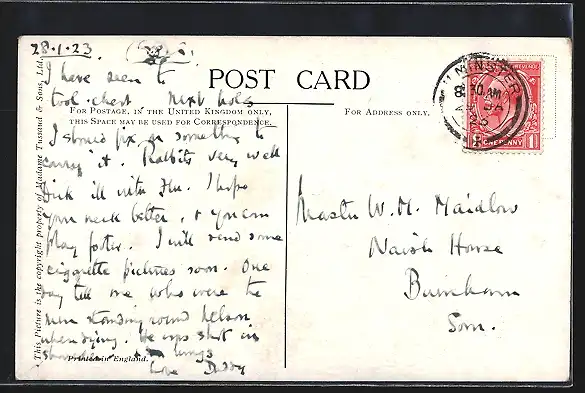 28.1.23.
I have seen to
POST CARD
tool-chest Next hols
FOR POSTAGE, IN THE UNITED KINGDOM ONLY,
THIS SPACE MAY BE USED FOR CORRESPONDENCE.
FOR ADDRESS ONLY.
I should fix on something to
carry it. Rabbits very well
Dick ill with Flu. I hope
your neck better, & you can
play footer. I will send some
cigarette pictures soon. One
day tell me who were the
men standing round Nelson
when dying. He was shot in
shoulder lungs
Love Daddy
Printed in England.
This Picture is the copyright property of Madame Tussaud & Sons, Ltd.
ILMINSTER
8 30 AM
JA
23
ONE PENNY
Master W. M. Maidlow
Naish House
Burnham
Som.